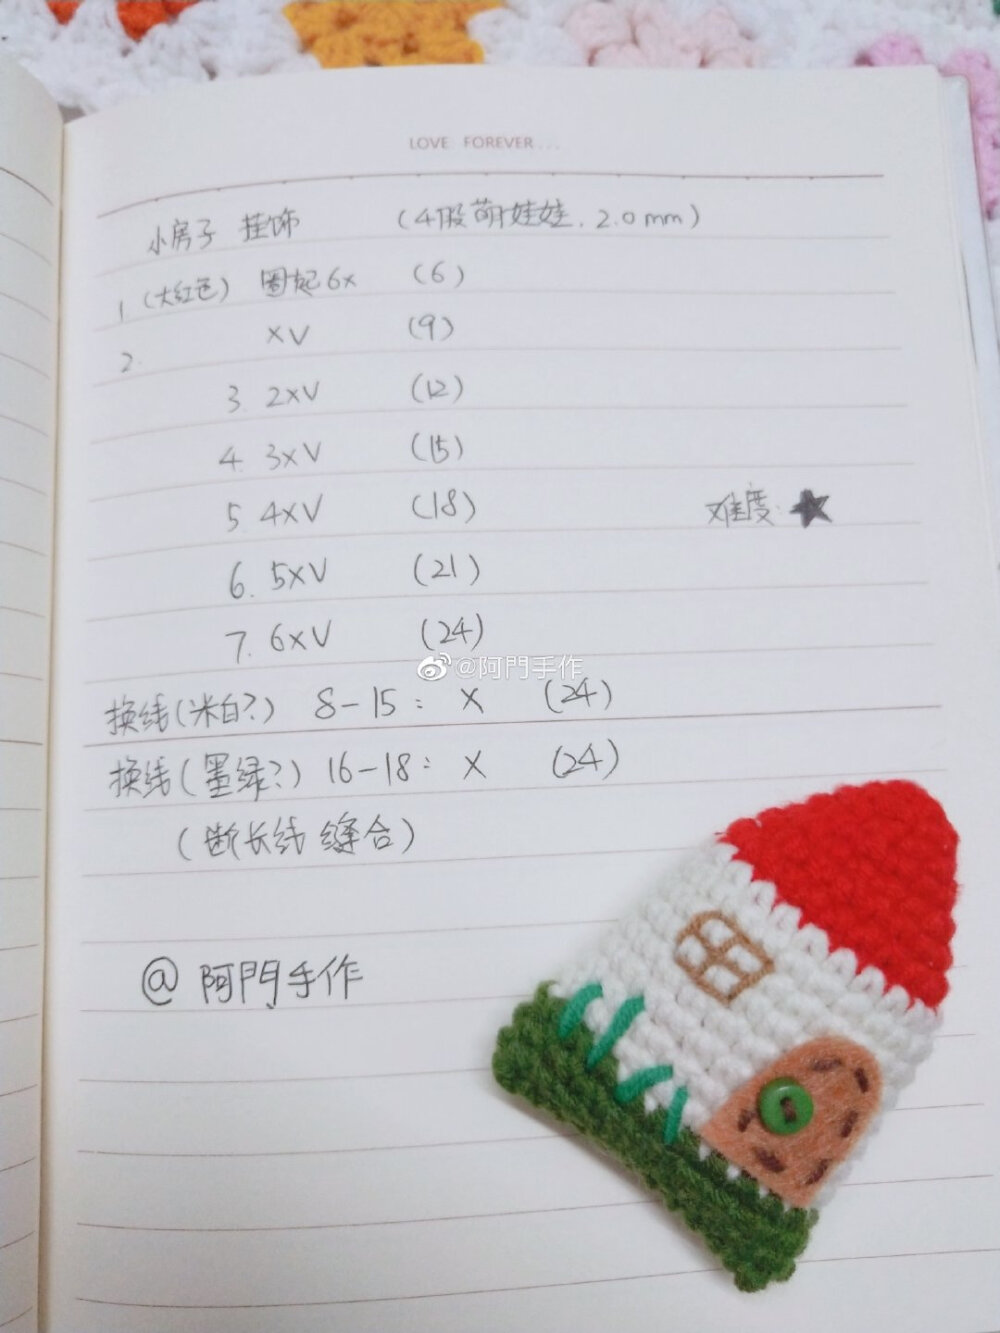 LOVE FOREVER...
小房子 挂饰 (4股萌娃娃. 2.0mm)
1 (大红色) 圈起6x (6)
2. xV (9)
3. 2xV (12)
4. 3xV (15)
5. 4xV (18)
难度: ★
6. 5xV (21)
7. 6xV (24)
@阿門手作
换线(米白?) 8-15: X (24)
换线(墨绿?) 16-18: X (24)
(断长线 缝合)
@ 阿門手作